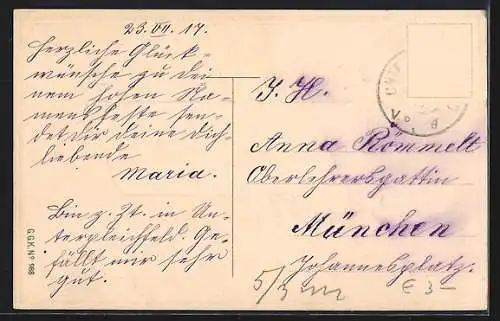 23. VII. 17.
Herzliche Glück-
wünsche zu dei
nem hohen Na-
mensfeste sen-
det dir deine dich
liebende
Maria.
Bin z. Zt. in Un-
terpleichfeld. Ge-
fällt mir sehr
gut.
I. H.
Anna Rommelt
Oberlehrersgattin
München
Johannesplatz.
G.G.K. No 988
€ 3-